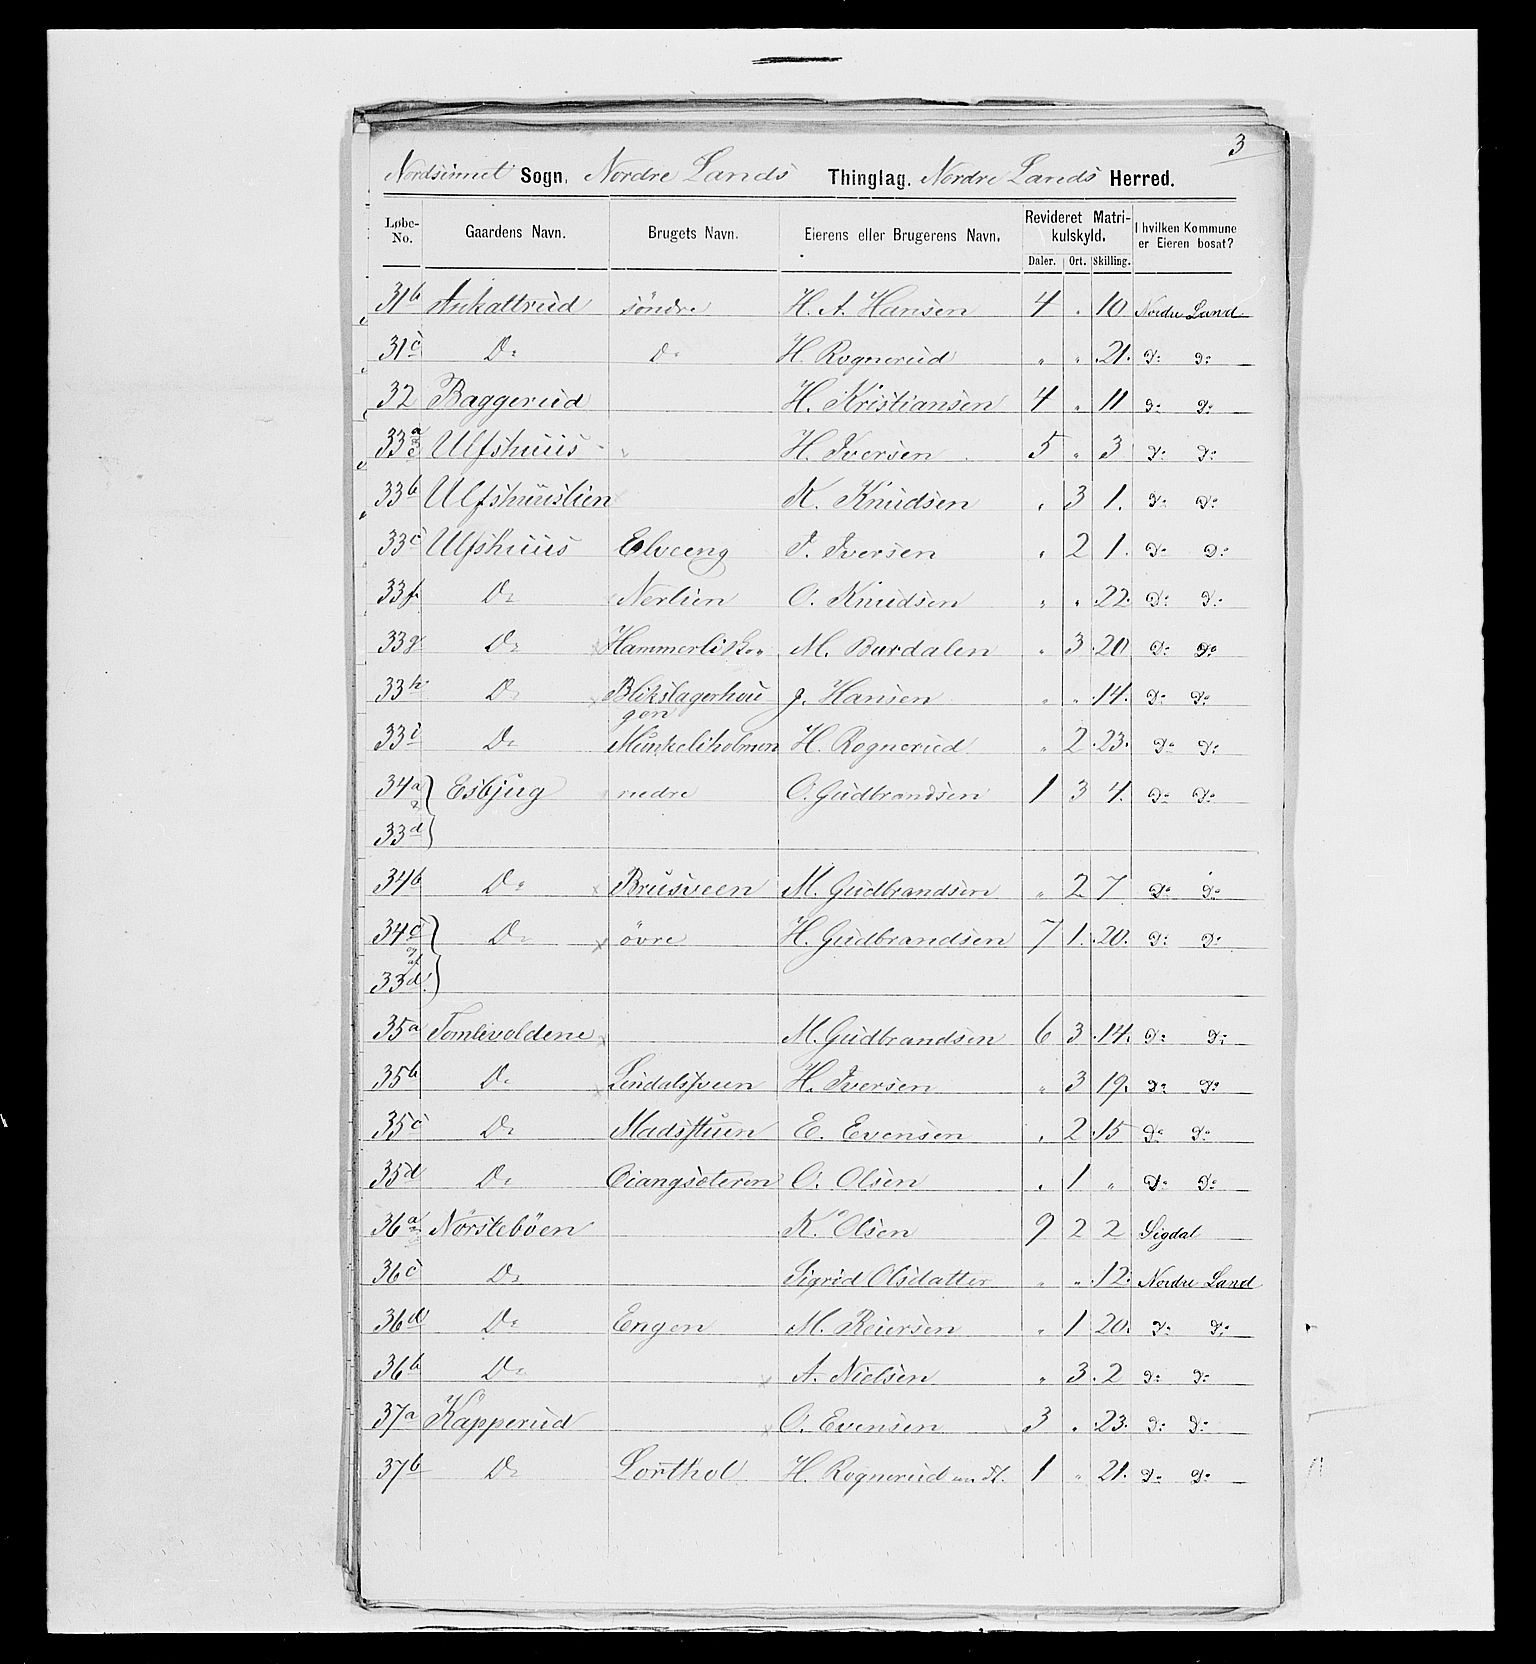 3
Nordsinnet Sogn. Nordre Lands Thinglag. Nordre Lands Herred.
Løbe-No. Gaardens Navn. Brugets Navn. Eierens eller Brugerens Navn. Revideret Matrikulskyld. I hvilken Kommune er Eieren bosat?
Daler. Ort. Skilling.
31b Askattrud söndre H. A. Hansen 4 " 10 Nordre Land
31c Do Do H. Rognerud " " 21. Do Do
32 Baggerud H. Kristiansen 4 " 11 Do Do
33a Ulfshuus H. Iversen 5 " 3 Do Do
33b Ulfshuuslien K. Knudsen " 3 1. Do Do
33c Ulfshuus Elveeng I. Iversen " 2 1. Do Do
33f Do Nerlien O. Knudsen " " 22. Do Do
33g Do M. Bardalen " 3 20 Do Do
33h Do Blikslagerhou J. Hansen " " 14. Do Do
gen
33i Do Munkeliholmen H. Rognerud " 2 23. Do Do
34a & Esbjug nedre O. Gudbrandsen 1 3 4. Do Do
33d
34b Do Brusveen M. Gudbrandsen " 2 7 Do Do
34c Do övre H. Gudbrandsen 7 1. 20. Do Do
& af
33d
35a Tomlevoldene M. Gudbrandsen 6 3 14. Do Do
35b Do Lindalsveen H. Iversen " 3 19. Do Do
35c Do Madsstuen E. Evensen " 2 15 Do Do
35d Do O. Olsen " 1 " Do Do
36a Nörsteböen K. Olsen 9 2 2 Sigdal
36c Do Sigrid Olsdatter " " 12. Nordre Land
36d Do Engen M. Reiersen " 1 20. Do Do
36b Do A. Nielsen " 3. 2 Do Do
37a Kapperud O. Evensen 3 " 23. Do Do
37b Do Lorthol H. Rognerud 1 " 21. Do Do